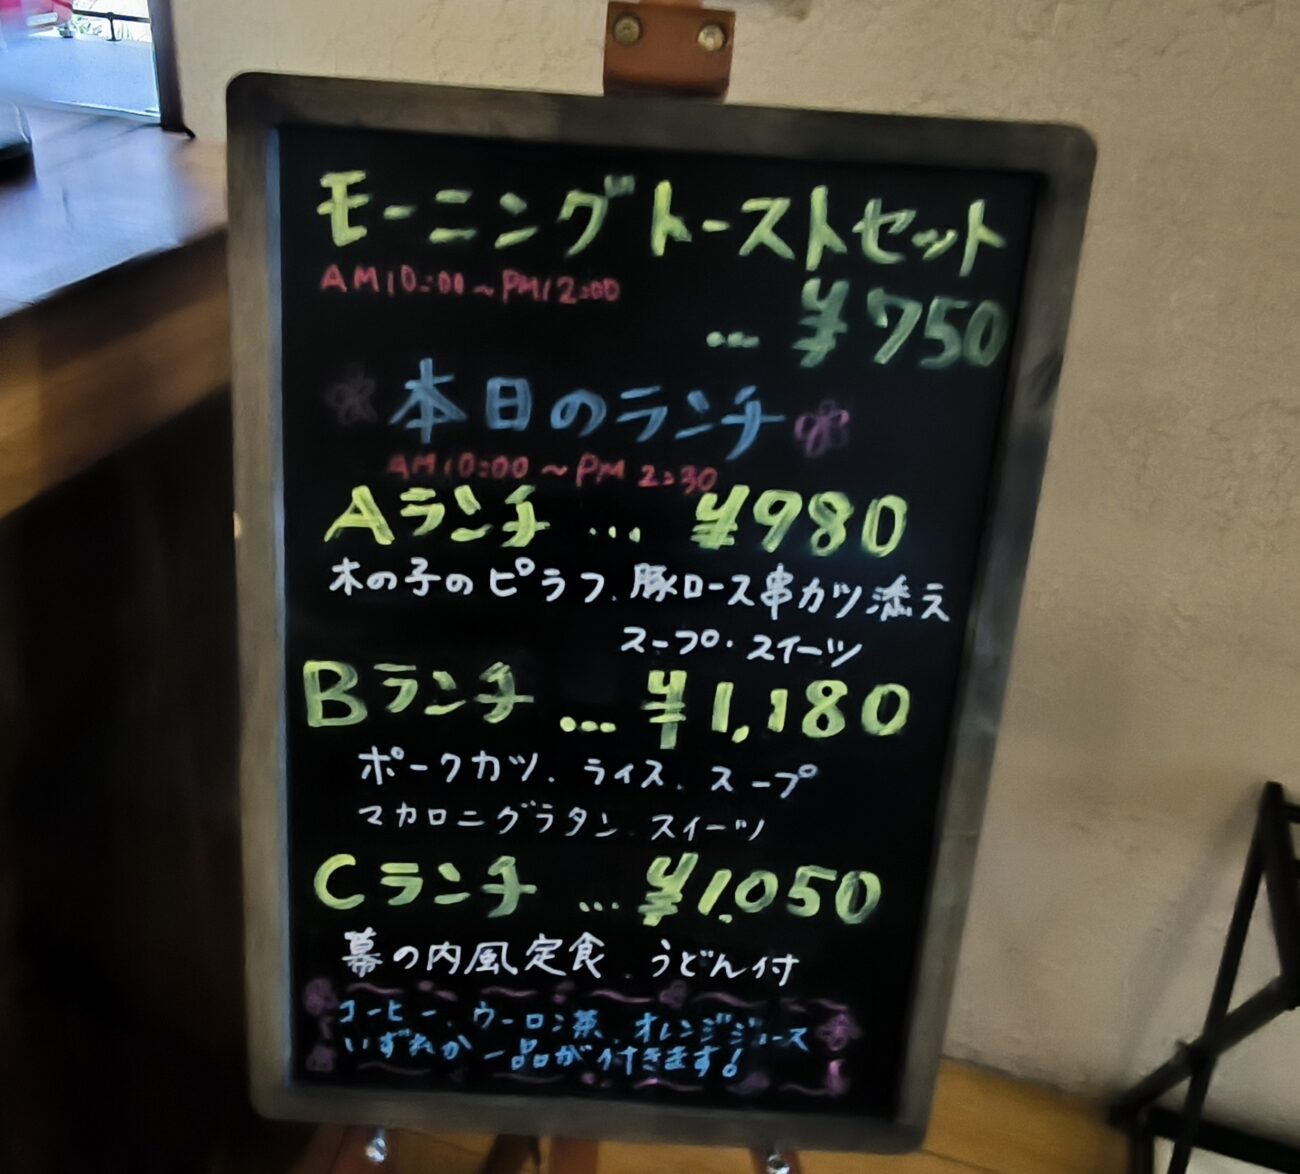 モーニングトーストセット
AM10:00〜PM12:00
… ¥750
本日のランチ
AM10:00〜PM 2:30
Aランチ … ¥980
木の子のピラフ、豚ロース串カツ添え
スープ・スイーツ
Bランチ … ¥1,180
ポークカツ、ライス、スープ
マカロニグラタン、スイーツ
Cランチ … ¥1,050
幕の内風定食、うどん付
コーヒー、ウーロン茶、オレンジジュース
いずれか一品が付きます!